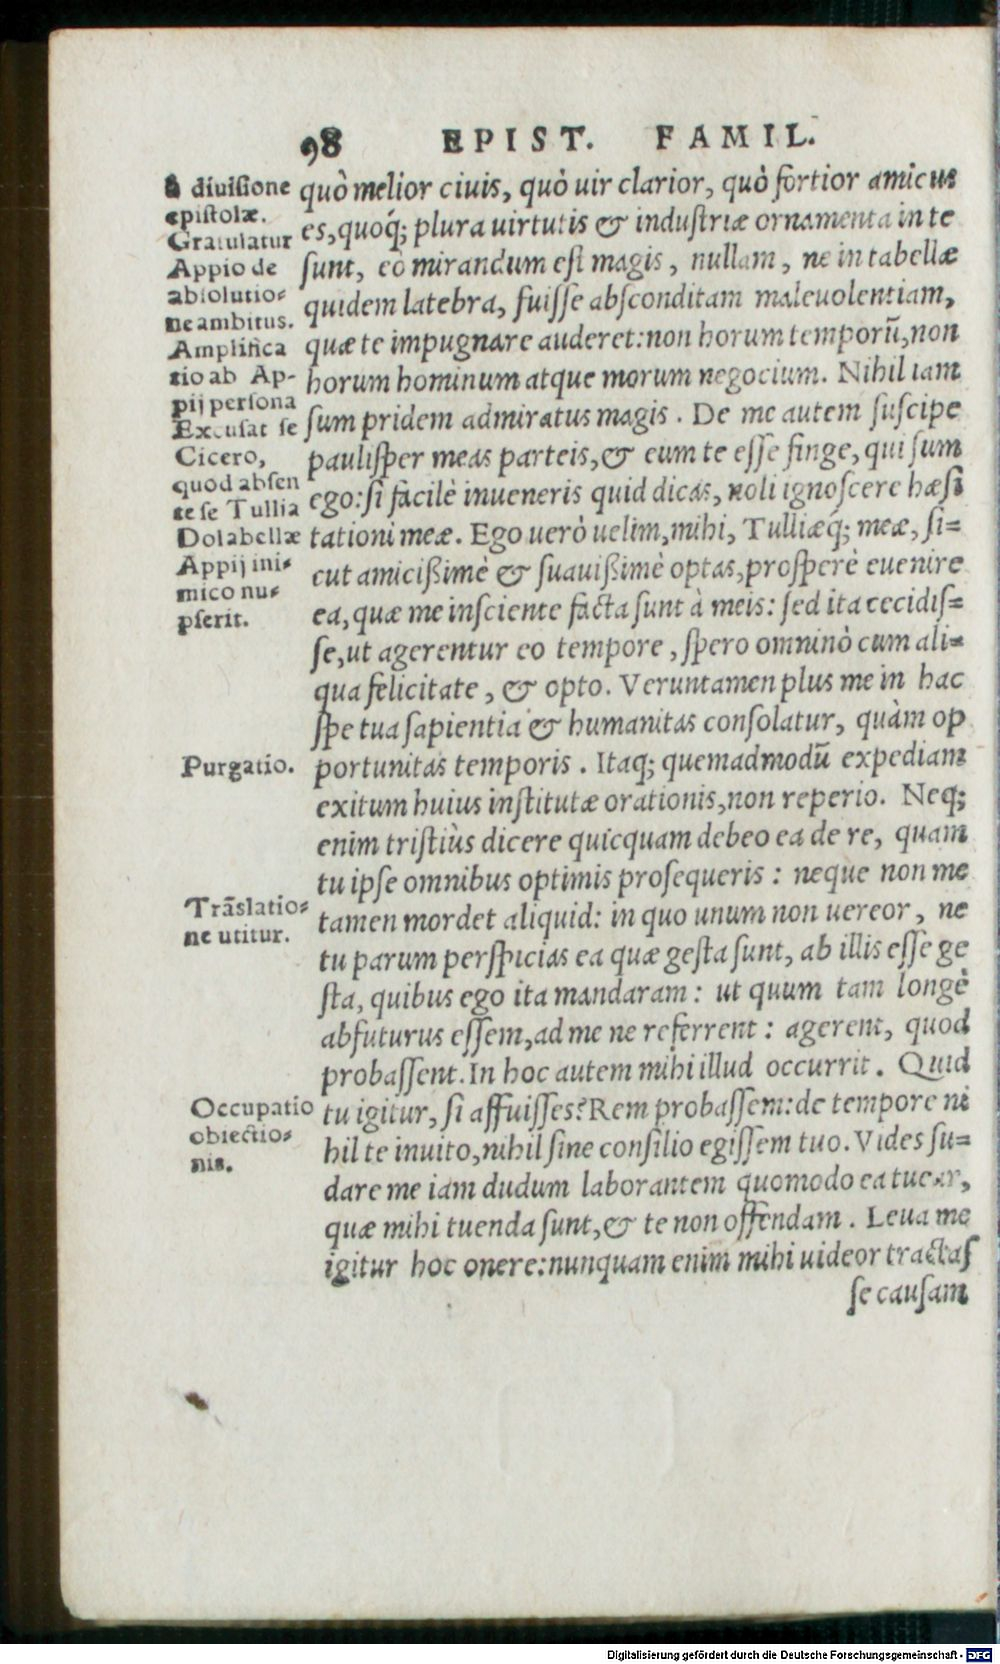 98 EPIST. FAMIL.
à diuisione
epistolæ.
Gratulatur
Appio de
absolutio-
ne ambitus.
Amplifica
tio ab Ap-
pij persona
Excusat se
Cicero,
quod absen
te se Tullia
Dolabellæ
Appij ini-
mico nu-
pserit.
Purgatio.
Trãslatio-
ne utitur.
Occupatio
obiectio-
nis.
quò melior ciuis, quò uir clarior, quò fortior amicus
es, quoq́; plura uirtutis & industriæ ornamenta in te
sunt, eò mirandum est magis, nullam, ne in tabellæ
quidem latebra, fuisse absconditam maleuolentiam,
quæ te impugnare auderet: non horum temporũ, non
horum hominum atque morum negocium. Nihil iam
sum pridem admiratus magis. De me autem suscipe
paulisper meas parteis, & eum te esse finge, qui sum
ego: si facilè inueneris quid dicas, noli ignoscere hæsi
tationi meæ. Ego uerò uelim, mihi, Tulliæq́; meæ, si-
cut amicißimè & suauißimè optas, prosperè euenire
ea, quæ me insciente facta sunt à meis: sed ita cecidis-
se, ut agerentur eo tempore, spero omninò cum ali-
qua felicitate, & opto. Veruntamen plus me in hac
spe tua sapientia & humanitas consolatur, quàm op
portunitas temporis. Itaq; quemadmodũ expediam
exitum huius institutæ orationis, non reperio. Neq;
enim tristiùs dicere quicquam debeo ea de re, quam
tu ipse omnibus optimis prosequeris: neque non me
tamen mordet aliquid: in quo unum non uereor, ne
tu parum perspicias ea quæ gesta sunt, ab illis esse ge
sta, quibus ego ita mandaram: ut quum tam longè
abfuturus essem, ad me ne referrent: agerent, quod
probassent. In hoc autem mihi illud occurrit. Quid
tu igitur, si affuisses? Rem probassem: de tempore ni
hil te inuito, nihil sine consilio egissem tuo. Vides su-
dare me iam dudum laborantem quomodo ea tuear,
quæ mihi tuenda sunt, & te non offendam. Leua me
igitur hoc onere: nunquam enim mihi uideor tractas
se causam
Digitalisierung gefördert durch die Deutsche Forschungsgemeinschaft - DFG